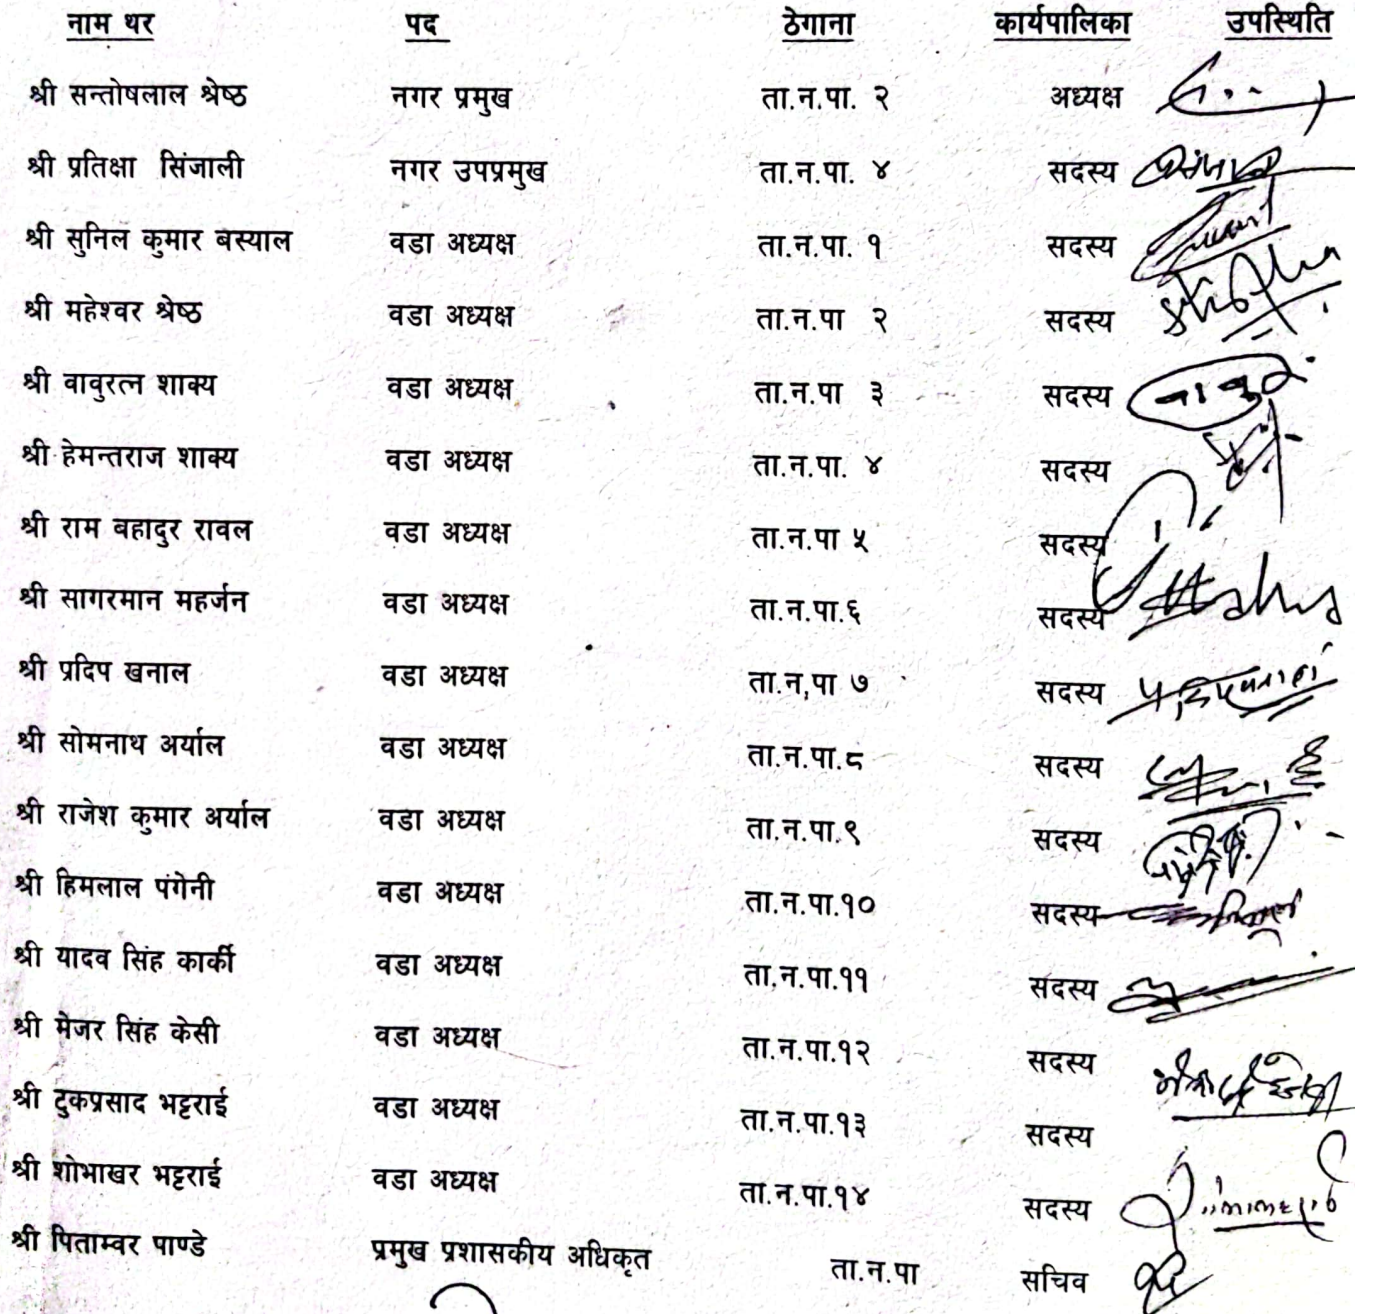 नाम थर पद ठेगाना कार्यपालिका उपस्थिति
श्री सन्तोषलाल श्रेष्ठ नगर प्रमुख ता.न.पा. २ अध्यक्ष
श्री प्रतिक्षा सिंजाली नगर उपप्रमुख ता.न.पा. ४ सदस्य
श्री सुनिल कुमार बस्याल वडा अध्यक्ष ता.न.पा. १ सदस्य
श्री महेश्वर श्रेष्ठ वडा अध्यक्ष ता.न.पा २ सदस्य
श्री वावुरत्न शाक्य वडा अध्यक्ष ता.न.पा ३ सदस्य
श्री हेमन्तराज शाक्य वडा अध्यक्ष ता.न.पा. ४ सदस्य
श्री राम बहादुर रावल वडा अध्यक्ष ता.न.पा ५ सदस्य
श्री सागरमान महर्जन वडा अध्यक्ष ता.न.पा.६ सदस्य
श्री प्रदिप खनाल वडा अध्यक्ष ता.न,पा ७ सदस्य
श्री सोमनाथ अर्याल वडा अध्यक्ष ता.न.पा.८ सदस्य
श्री राजेश कुमार अर्याल वडा अध्यक्ष ता.न.पा.९ सदस्य
श्री हिमलाल पंगेनी वडा अध्यक्ष ता.न.पा.१० सदस्य
श्री यादव सिंह कार्की वडा अध्यक्ष ता.न.पा.११ सदस्य
श्री मेजर सिंह केसी वडा अध्यक्ष ता.न.पा.१२ सदस्य
श्री टुकप्रसाद भट्टराई वडा अध्यक्ष ता.न.पा.१३ सदस्य
श्री शोभाखर भट्टराई वडा अध्यक्ष ता.न.पा.१४ सदस्य
श्री पिताम्वर पाण्डे प्रमुख प्रशासकीय अधिकृत ता.न.पा सचिव